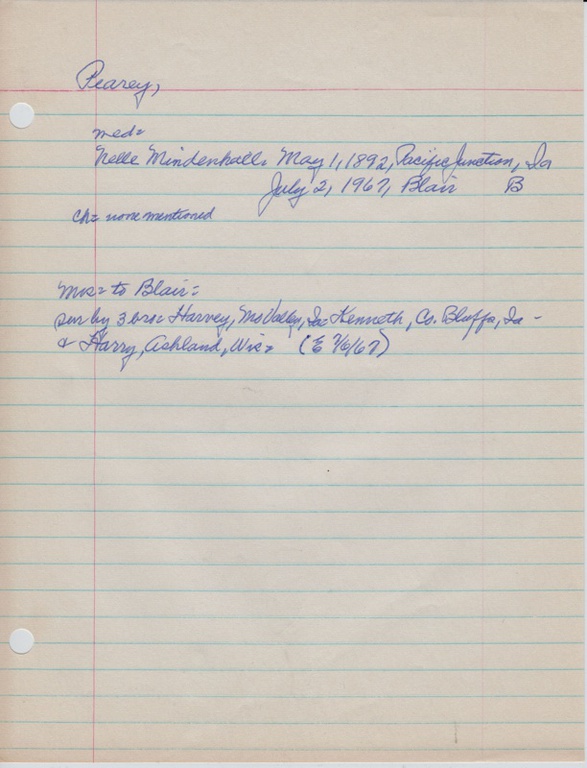 Pearey,
med=
Nelle Mindenhall. May 1, 1892, Pacific Junction, Ia
July 2, 1967, Blair B
Ch= none mentioned
to Blair=
sur by 3 bro= Harvey, Mo Valley, Ia= Kenneth, Co. Bluffs, Ia -
& Harry, Ashland, Wis= (E 7/6/67)